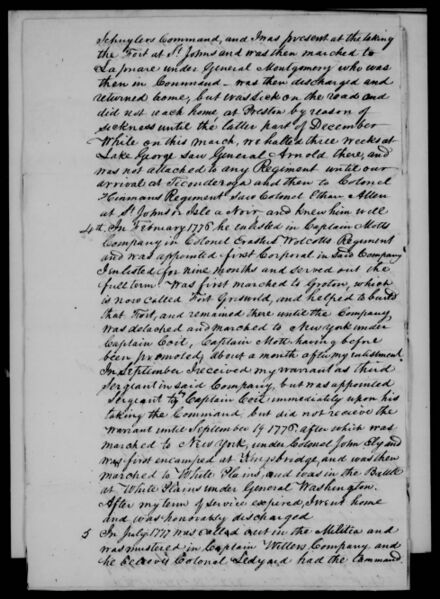 Schuylers Command, and I was present at the taking
the Fort at St Johns and was then marched to
Laprare under General Montgomery who was
then in Command - was then discharged and
returned home, but was Sick on the road and
did not reach home at Preston by reason of
sickness until the latter part of December
While on this march, we halted three weeks at
Lake George Saw General Arnold there, and
was not attached to any Regiment until our
arrival at Ticonderoga and then to Colonel
Hinmans Regiment Saw Colonel Ethan Allen
at St Johns or Isle a Noix and knew him well
4th. In February 1776, he enlisted in Captain Motts
Company in Colonel Erastus Wolcotts Regiment
and was appointed first Corporal in Said Company
I inlisted for nine months and served out the
full term was first marched to Groton, which
is now called Fort Griswld, and helped to build
that Fort, and remained there until the Company
was detached and marched to New York under
Captain Coit, Captain Mott having before
been promoted, about a month after my enlistment
In September I received my warrant as third
Sergiant in said Company, but was appointed
Sergeant by Captain Coit immediately upon his
taking the Command but did not recieve the
warrant until September 19 1776 after which was
marched to New York, under Colonel John Ely and
was first encamped at Kingsbridge, and was then
marched to White Plains, and was in the Battle
at White Plains under General Washington.
After my term of service expired, I went home
and was honorably discharged
5 In July 1777 was called out in the Militia and
was mustered in Captain Willets Company and
he Colonel Ledyard had the Command